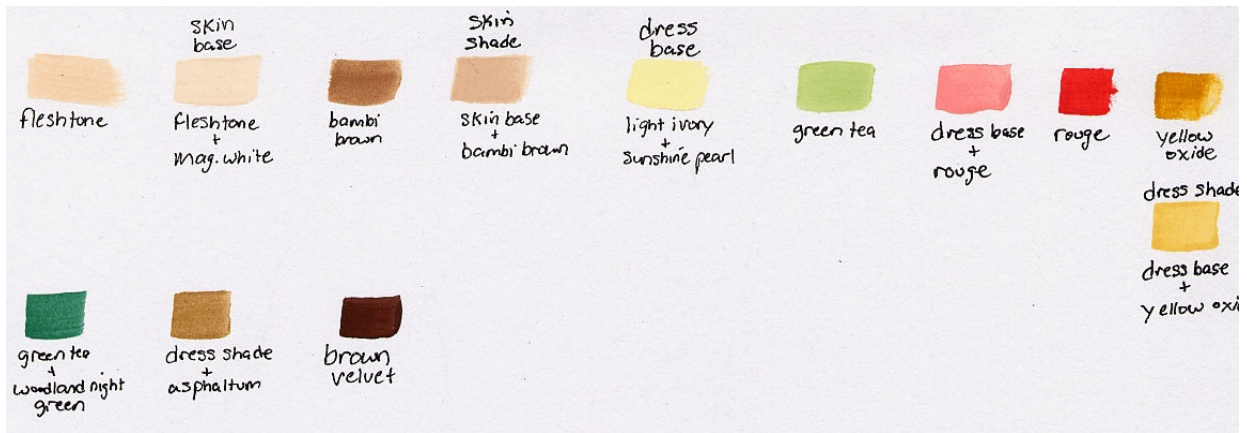 skin
base
skin
shade
dress
base
fleshtone
fleshtone
+
mag. white
bambi
brown
skin base
+
bambi brown
light ivory
+
sunshine pearl
green tea
dress base
+
rouge
rouge
yellow
oxide
dress shade
dress base
+
yellow oxi
green tea
+
woodland night
green
dress shade
+
asphaltum
brown
velvet